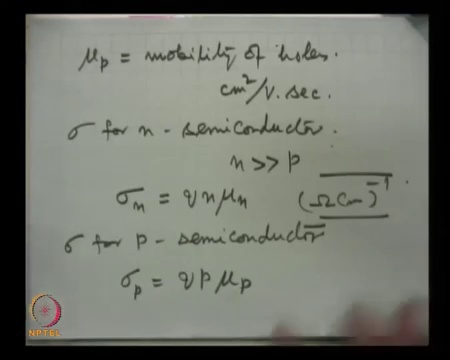 μp = mobility of holes.
cm²/V.sec.
σ for n - semiconductor.
n >> p
σn = q n μn (Ω cm)⁻¹.
σ for p - semiconductor
σp = q p μp
NPTEL